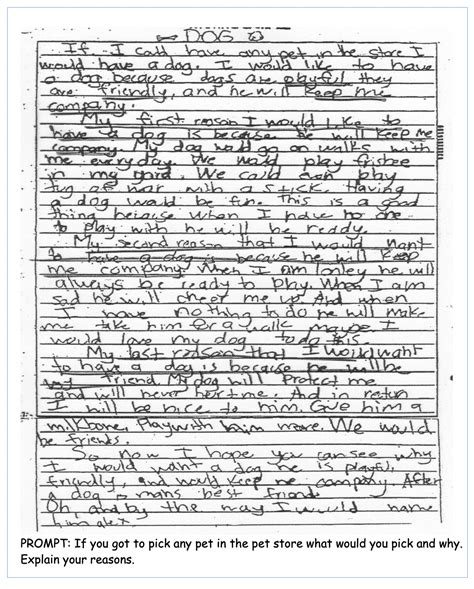 DOG
If I could have any pet in the store I
would have a dog. I would like to have
a dog because dogs are playful they
are friendly, and he will keep me
company.
My first reason I would like to
have a dog is because he will keep me
company. My dog would go on walks with
me everyday. We would play frisbee
in my yard. We could even play
tug of war with a stick. Having
a dog would be fun. This is a good
thing because when I have no one
to play with he will be ready.
My second reason that I would want
to have a dog is because he will keep
me company. When I am lonley he will
always be ready to play. When I am
sad he will cheer me up. And when
I have nothing to do he will make
me take him for a walk maybe. I
would love my dog to do this.
My last reason that I would want
to have a dog is because he will be
my friend. My dog will protect me
and will never hurt me. And in return
I will be nice to him. Give him a
milkbone, Play with him more. We would
be friends.
So now I hope you can see why
I would want a dog he is playful,
friendly, and would keep me company. After
a dog is mans best friend.
Oh, and by the way I would name
him alex.
PROMPT: If you got to pick any pet in the pet store what would you pick and why.
Explain your reasons.